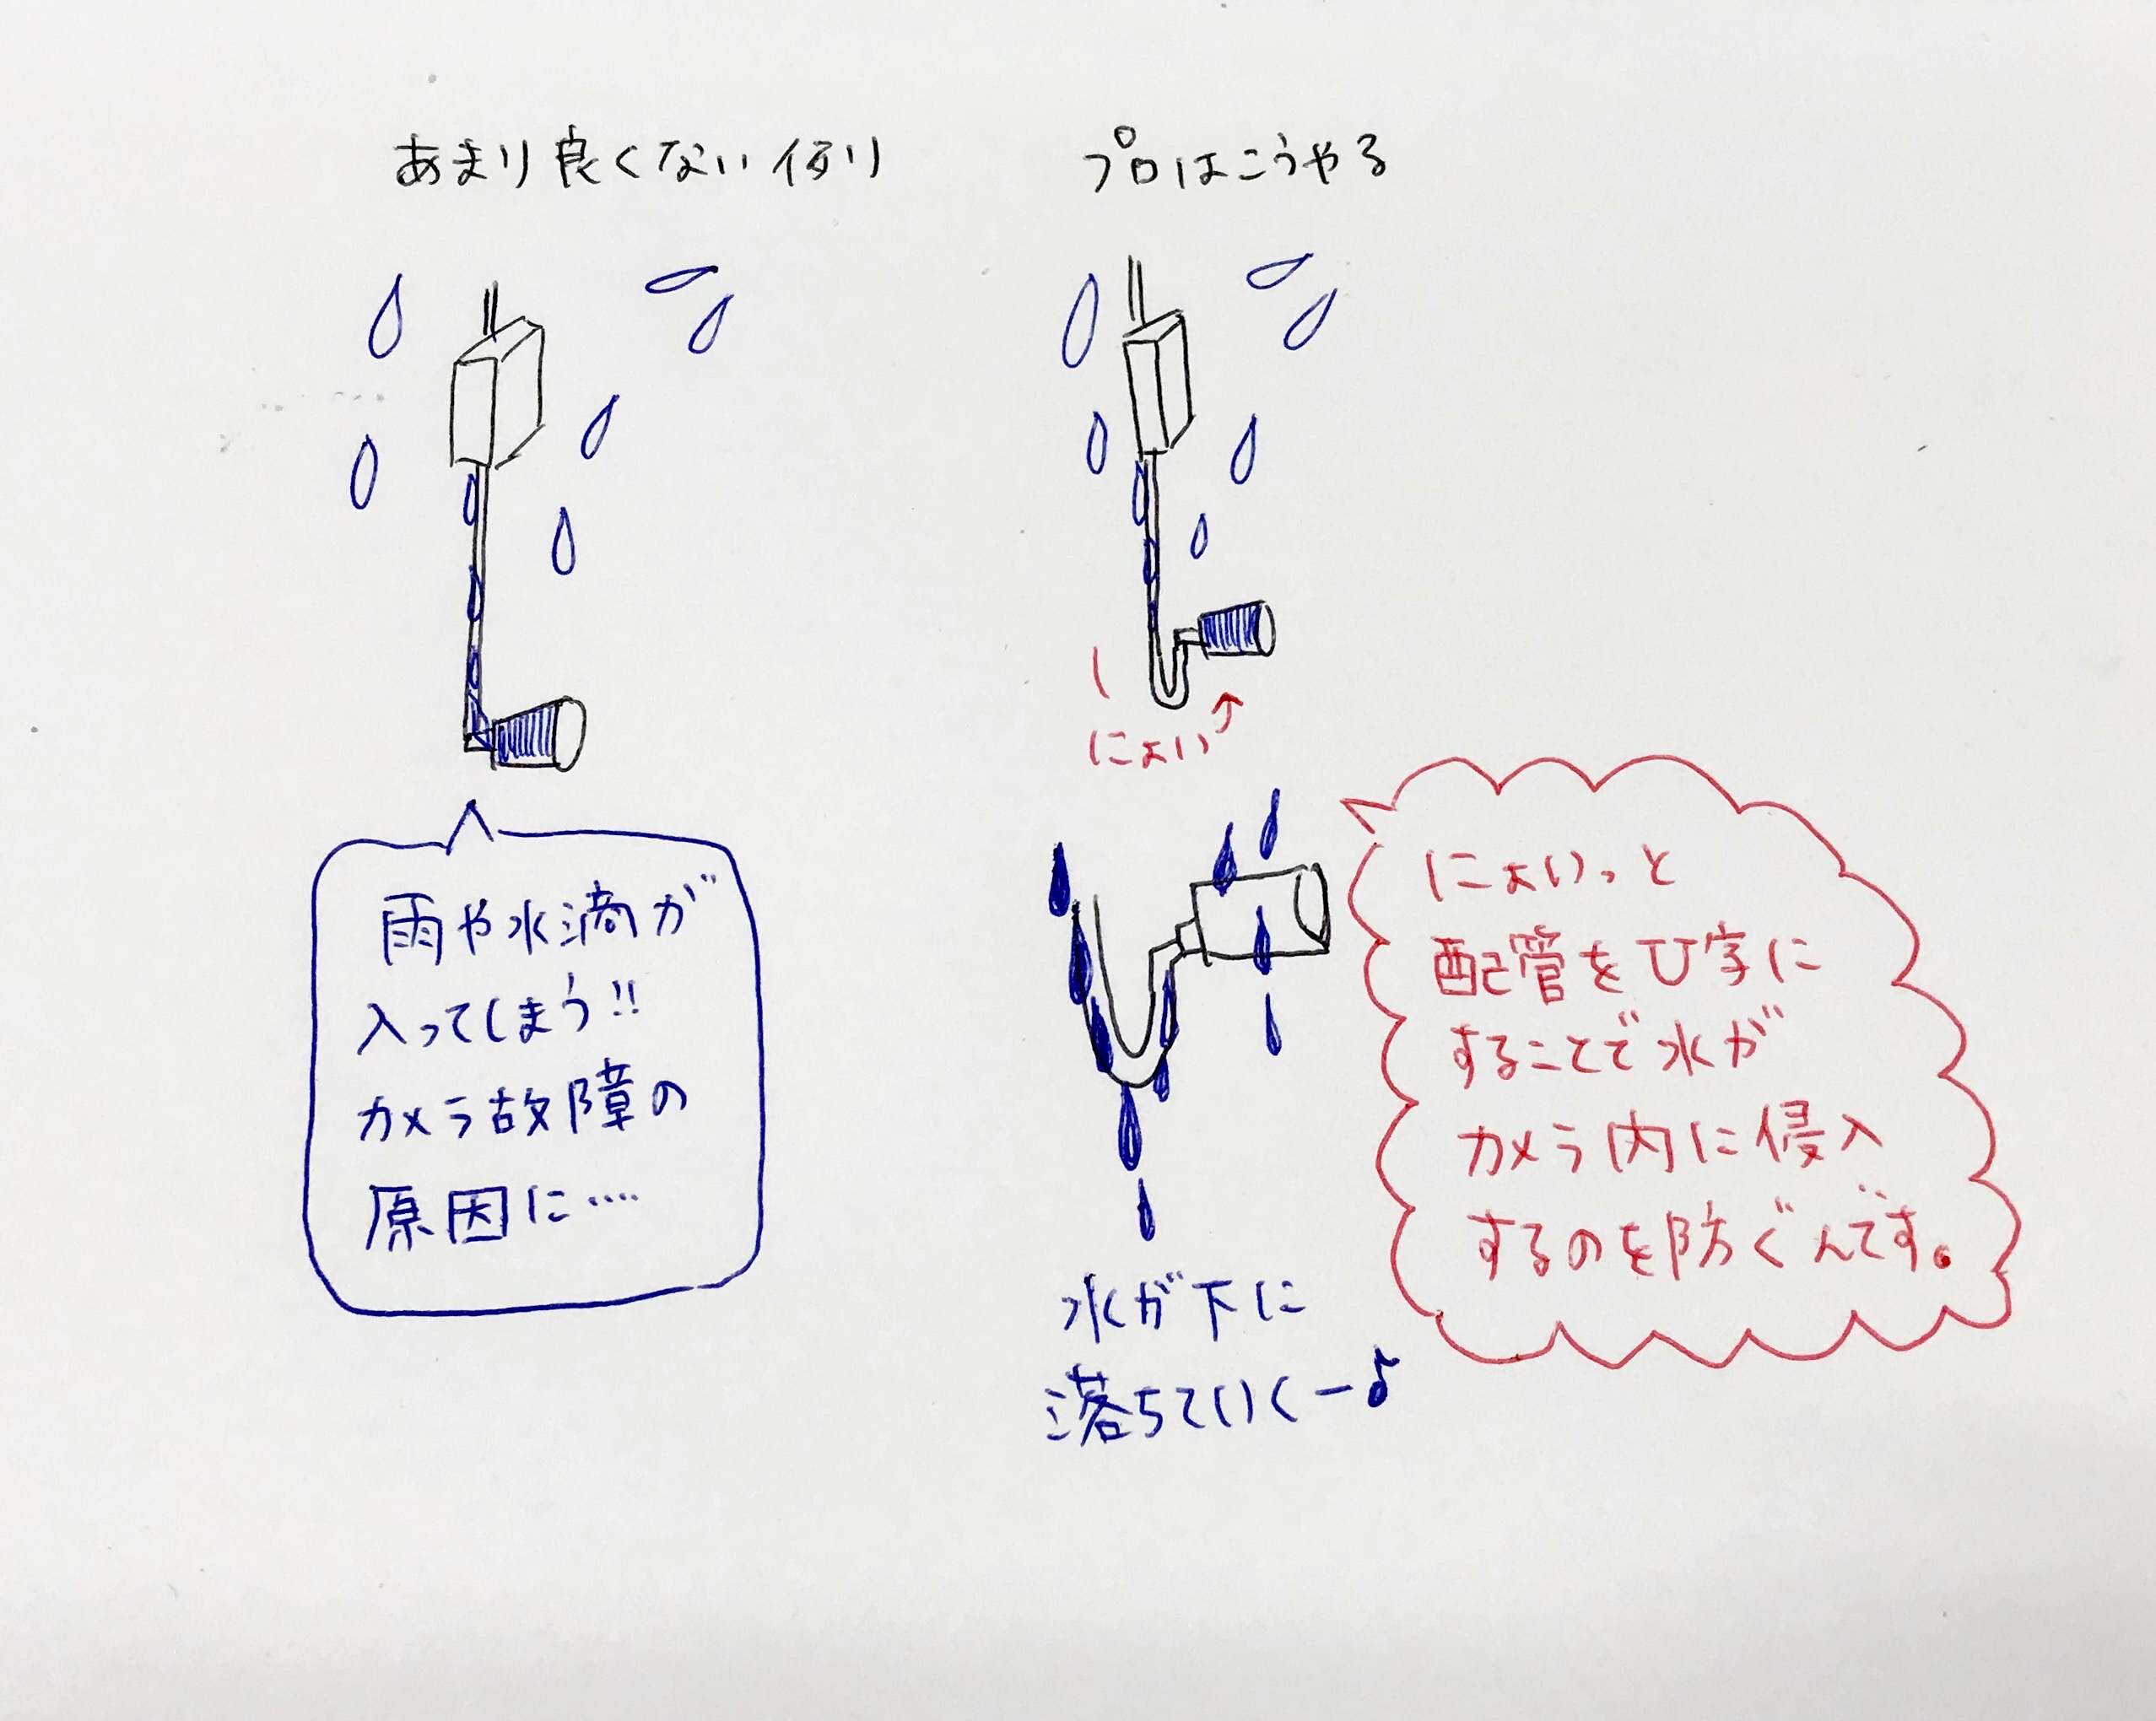 あまり良くない例
雨や水滴が
入ってしまう!!
カメラ故障の
原因に‥‥
プロはこうやる
にょい
にょいっと
配管をU字に
することで水が
カメラ内に侵入
するのを防ぐんです。
水が下に
落ちていくー♪